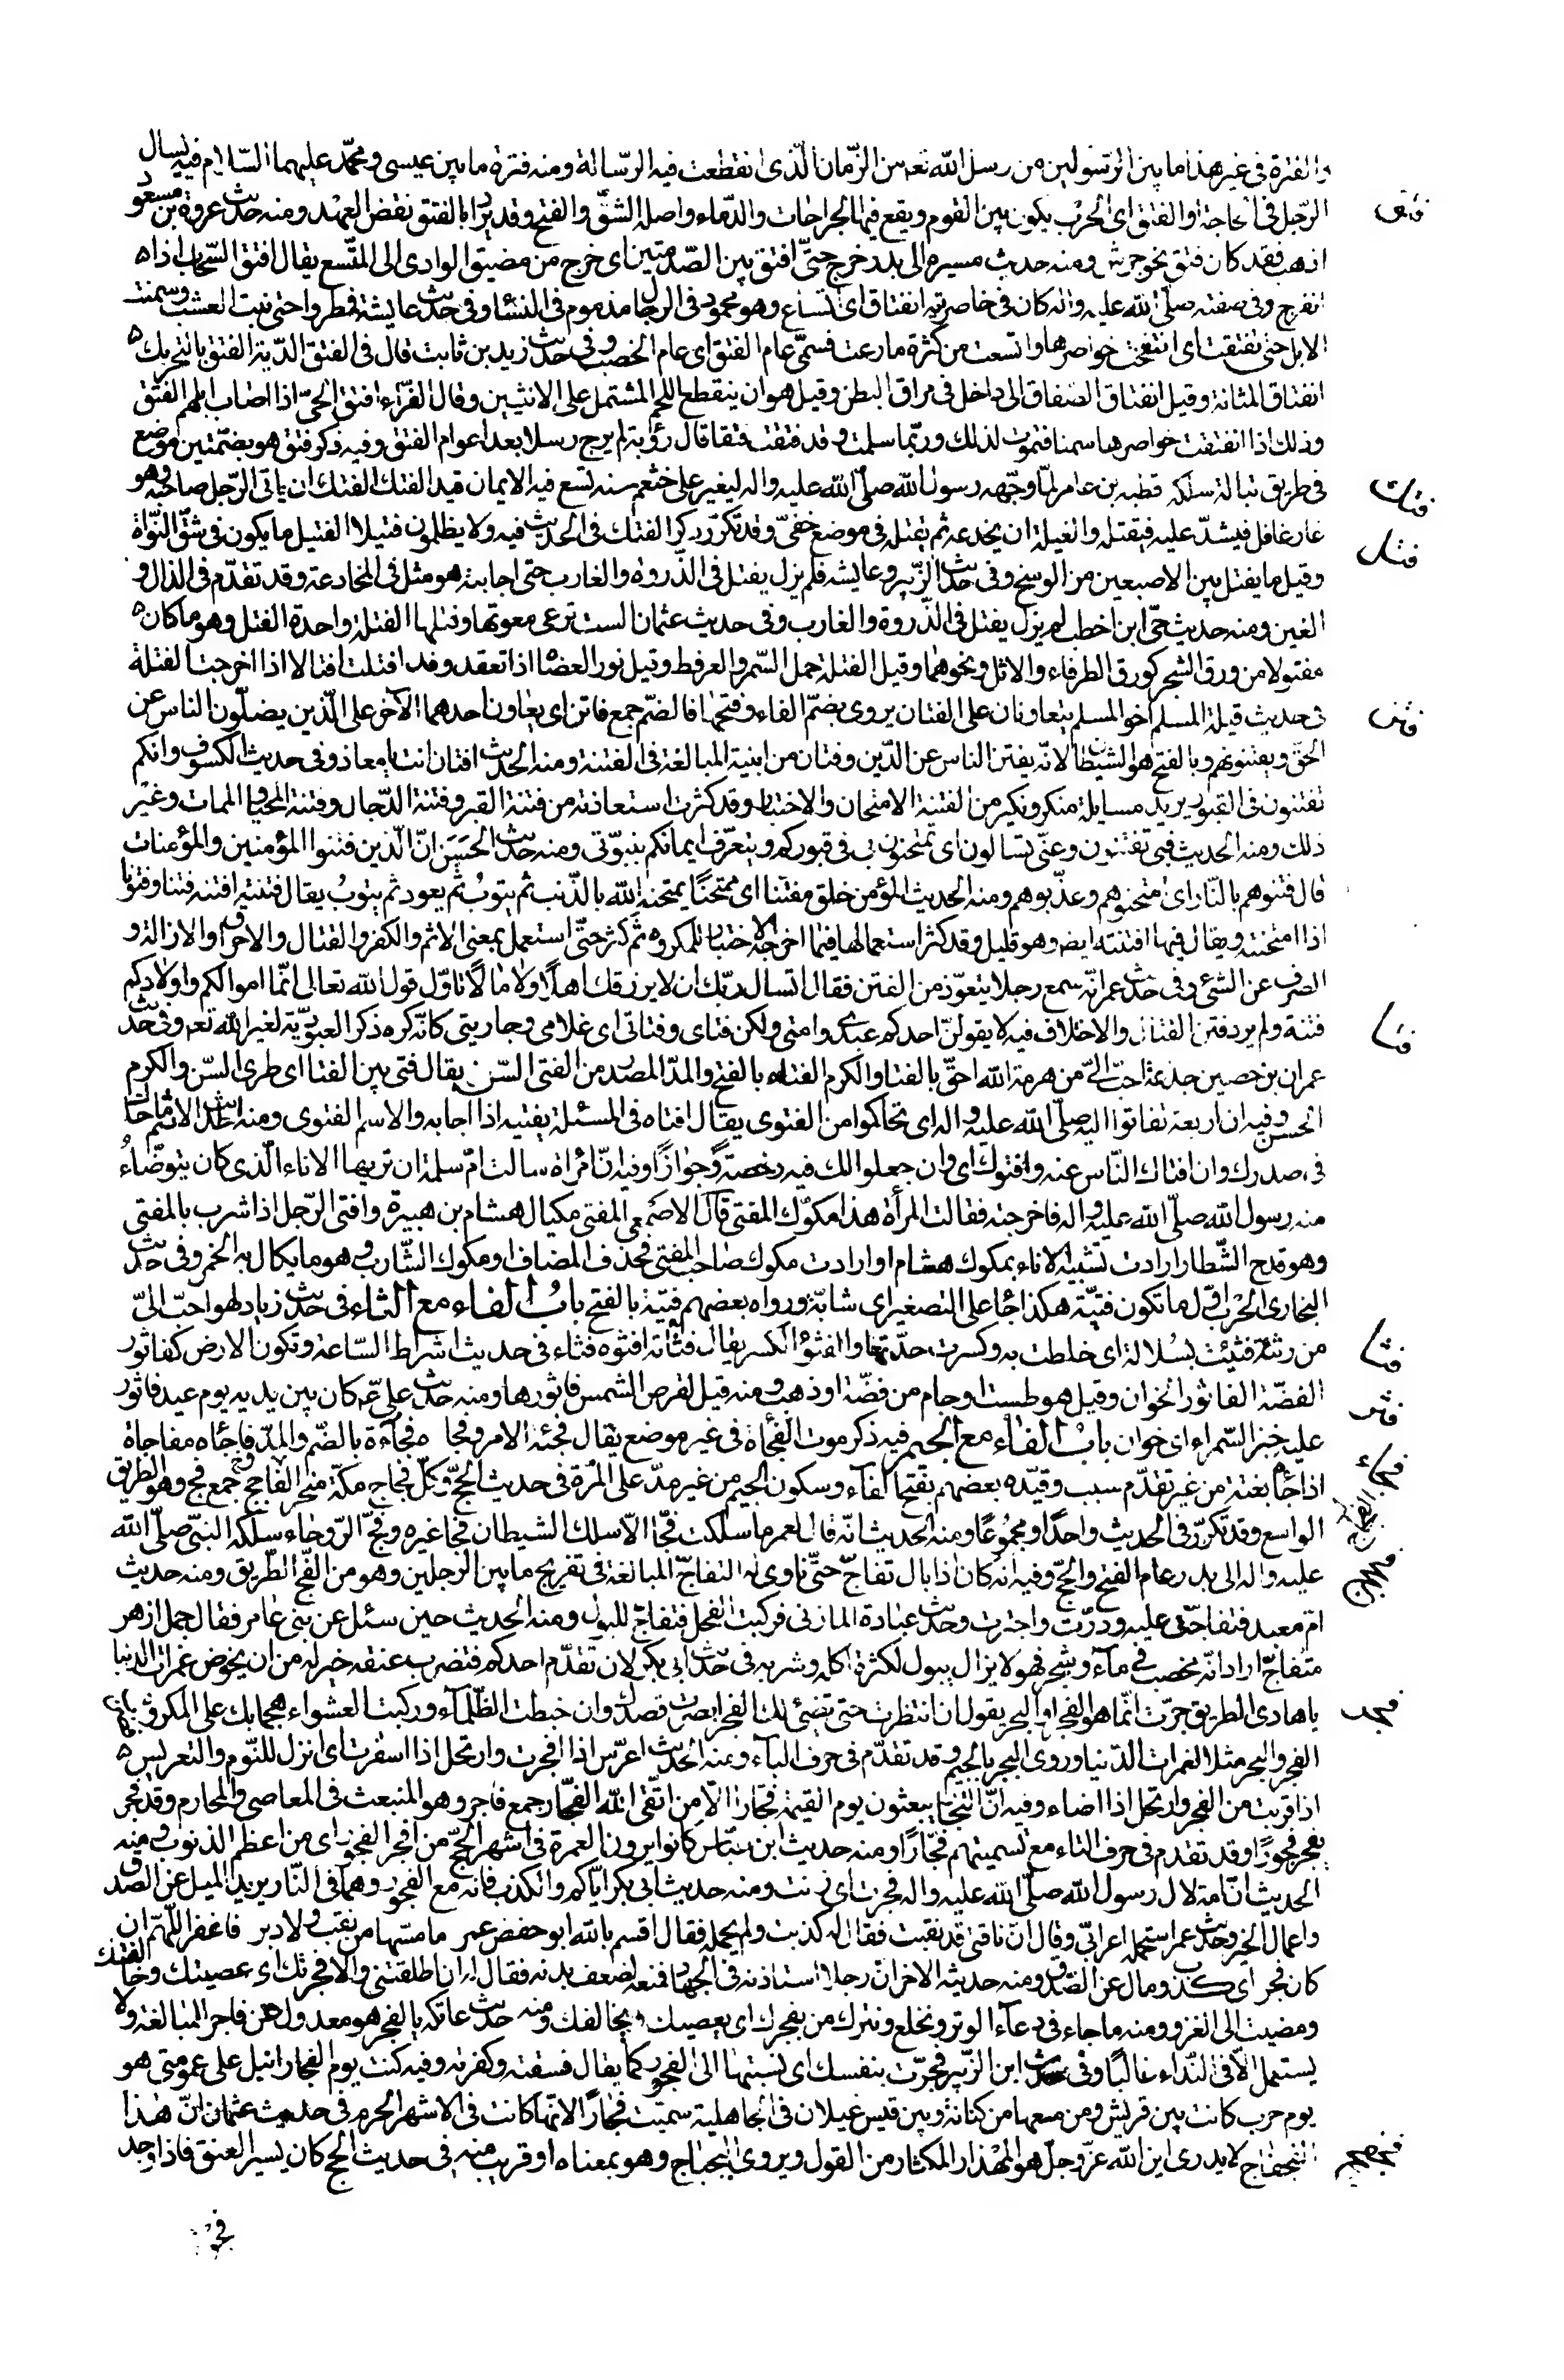 والفترة فى غير هذا ما بين الرسولين من رسل الله تعه من الزمان الذى انقطعت فيه الرسالة ومنه فترة ما بين عيسى ومحمد عليهما السلام فيه يسال
فتق
الرجل فى الحاجة او الفتق اى الحرب يكون بين القوم ويقع فيها الجراحات والدماء واصله الشق والفتح وقد يراد بالفتق نقض العهد ومنه حديث عروة بن مسعود
اذهب فقد كان فتق نحو جرش ومنه حديث مسيره الى بدر خرج حتى افتق بين الصدمتين اى خرج من مضيق الوادى الى المتسع يقال افتق السحاب اذا
انفرج وفى صفته صلى الله عليه واله كان فى خاصرتيه انفتاق اى اتساع وهو محمود فى الرجال مذموم فى النساء وفى حديث عايشة فمطروا حتى نبت العشب وسمنت
الابل حتى تفتقت اى انتفخت خواصرها واتسعت من كثرة ما رعت فسمى عام الفتق اى عام الخصب وفى حديث زيد بن ثابت قال فى الفتق الدية الفتق بالتحريك
انفتاق المثانة وقيل انفتاق الصفاق الى داخل فى مراق البطن وقيل هو ان ينقطع اللحم المشتمل على الانثيين وقال الفراء افتق الحى اذا اصاب ابلهم الفتق
وذلك اذا انفتقت خواصرها سمنا فتموت لذلك وربما سلمت وقد فتقت فتقا قال رؤبة لم يرج رسلا بعد اعوام الفتق وفيه ذكر فتق هو بضمتين موضع
فى طريق تبالة سلكه قطبه بن عامر لما وجهه رسول الله صلى الله عليه واله ليغير على خثعم سنه تسع فيه الايمان قيد الفتك الفتك ان ياتى الرجل صاحبه وهو
فتك
غار غافل فيشد عليه فيقتله والغيلة ان يخدعه ثم يقتله فى موضع خفى وقد تكرر ذكر الفتك فى الحديث فيه ولا يظلمون فتيلا الفتيل ما يكون فى شق النواة
فتل
وقيل ما يفتل بين الاصبعين من الوسخ وفى حديث الزبير وعايشه فلم يزل يفتل فى الذروة والغارب حتى اجابته هو مثل فى المخادعة وقد تقدم فى الذال و
الغين ومنه حديث حى ابن اخطب لم يزل يفتل فى الذروة والغارب وفى حديث عثمان الست ترعى معوتها وفتلها الفتلة واحدة الفتل وهو ما كان
مفتولا من ورق الشجر كورق الطرفاء والاثل ونحوهما وقيل الفتلة حمل السمر والعرفط وقيل نور العضاه اذا تعقد وقد افتلت افتالا اذا اخرجت الفتلة
فتن
فى حديث قيلة المسلم اخو المسلم يتعاونان على الفتان يروى بضم الفاء وفتحها فالضم جمع فاتن اى يعاون احدهما الآخر على الذين يضلون الناس عن
الحق ويفتنونهم وبالفتح هو الشيطان لانه يفتن الناس عن الدين وفتان من ابنية المبالغة فى الفتنة ومنه الحديث افتان انت يا معاذ وفى حديث الكسوف وانكم
تفتنون فى القبور يريد مسايلة منكر ونكير من الفتنة الامتحان والاختبار وقد كثرت استعاذته من فتنة القبر وفتنة الدجال وفتنة المحيا والممات وغير
ذلك ومنه الحديث فبى تفتنون وعنى تسالون اى تمتحنون بى فى قبوركم ويتعرف ايمانكم بنبوتى ومنه حديث الحسن ان الذين فتنوا المؤمنين والمؤمنات
قال فتنوهم بالنار اى امتحنوهم وعذبوهم ومنه الحديث المؤمن خلق مفتنا اى ممتحنا يمتحنه الله بالذنب ثم يتوب ثم يعود ثم يتوب يقال فتنته افتنه فتنا وفتونا
اذا امتحنته ويقال فيها افتنته ايضا وهو قليل وقد كثر استعمالها فيما اخرجه الاختبار للمكروه ثم كثر حتى استعمل بمعنى الاثم والكفر والقتال والاحراق والازالة و
الصرف عن الشئ وفى حديث عمر انه سمع رجلا يتعوذ من الفتن فقال اتسال ربك ان لا يرزقك اهلا ولا مالا تاول قول الله تعالى انما اموالكم واولادكم
فتا
فتنة ولم يرد فتن القتال والاختلاف فيه لا يقولن احدكم عبدى وامتى ولكن فتاى وفتاتى اى غلامى وجاريتى كانه كره ذكر العبودية لغير الله تعه وفى حديث
عمران بن حصين جذعة احب الى من هرمة الله احق بالفتا والكرم الفتاء بالفتح والمد المصدر من الفتى السن يقال فتى بين الفتا اى طرى السن والكرم
الحسن وفيه ان اربعة تفاتوا اليه صلى الله عليه واله اى تحاكموا من الفتوى يقال افتاه فى المسئلة يفتيه اذا اجابه والاسم الفتوى ومنه الحديث الاثم ما حاك
فى صدرك وان افتاك الناس عنه وافتوك اى وان جعلوا لك فيه رخصة وجوازا وفيه ان امراة سالت ام سلمة ان تريها الاناء الذى كان يتوضاء
منه رسول الله صلى الله عليه واله فاخرجته فقالت المرأة هذا مكوك المفتى قال الاصمعى المفتى مكيال هشام بن هبيرة وافتى الرجل اذا شرب بالمفتى
وهو قدح الشطار ارادت تشبيه الاناء بمكوك هشام او ارادت مكوك صاحب المفتى فحذف المضاف او مكوك الشارب وهو ما يكال به الخمر وفى حديث
البخارى الحرب اول ما تكون فتية هكذا جاء على التصغير اى شابة ورواه بعضهم فتية بالفتح باب الفاء مع الثاء فى حديث زياد لهو احب الى
فثا
من رثية فثئت بسلالة اى خلطت به وكسرت حدتها والفثؤ الكسر يقال فثاته افثوه فثاء فى حديث اشراط الساعة وتكون الارض كفاثور
فثر
الفضة الفاثور الخوان وقيل هو طست او جام من فضة او ذهب ومنه قيل لقرص الشمس فاثورها ومنه حديث على عم كان بين يديه يوم عيد فاثور
عليه خبز السمراء اى خوان باب الفاء مع الجيم فيه ذكر موت الفجاة فى غير موضع يقال فجئه الامر وفجاه فجاءة بالضم والمد وفاجاه مفاجاة
فجاء
اذا جاء بغتة من غير تقدم سبب وقيده بعضهم بفتح الفاء وسكون الجيم من غير مد على المرة فى حديث الحج وكل فجاج مكة منحر الفجاج جمع فج وهو الطريق
الواسع وقد تكرر فى الحديث واحدا ومجموعا ومنه الحديث انه قال لعمر ما سلكت فجا الا سلك الشيطان فجا غيره وفج الروحاء سلكه النبى صلى الله
عليه واله الى بدر وعام الفتح والحج وفيه انه كان اذا بال تفاج حتى ناوى له التفاج المبالغة فى تفريج ما بين الرجلين وهو من الفج الطريق ومنه حديث
ام معبد فتفاجت عليه ودرت واجترت وحديث عبادة المازنى فركبت الفحل فتفاج للبول ومنه الحديث حين سئل عن بنى عامر فقال جمل ازهر
متفاج اراد انه مخصب فى ماء وشجر فهو لا يزال يبول لكثرة اكله وشربه فى حديث ابى بكر لان تقدم احدكم فتضرب عنقه خير له من ان يخوض غمرات الدنيا
فجر
يا هادى الطريق جرت انما هو الفجر او البحر يقول ان انتظرت حتى تضئ لك الفجر ابصرت قصدك وان خبطت الظلماء وركبت العشواء هجما بك على المكروه
الفجر والبحر مثلا لغمرات الدنيا وروى البجر بالجيم وقد تقدم فى حرف الباء ومنه الحديث اعرس اذا افجرت وارتحل اذا اسفرت اى انزل للنوم والتعريس
اذا قربت من الفجر وارتحل اذا اضاء وفيه ان التجار يبعثون يوم القيمة فجارا الا من اتقى الله الفجار جمع فاجر وهو المنبعث فى المعاصى والمحارم وقد فجر
يفجر فجورا وقد تقدم فى حرف التاء مع تسميتهم فجارا ومنه حديث ابن عباس كانوا يرون العمرة فى اشهر الحج من افجر الفجور اى من اعظم الذنوب ومنه
الحديث ان امة لال رسول الله صلى الله عليه واله فجرت اى زنت ومنه حديث ابى بكر اياكم والكذب فانه مع الفجور وهما فى النار يريد الميل عن الصدق
واعمال الخير وحديث عمر استحمله اعرابى وقال ان ناقتى قد نقبت فقال له كذبت ولم يحمله فقال اقسم بالله ابو حفص عمر ما مسها من نقب ولا دبر فاغفر اللهم ان
كان فجر اى كذب ومال عن الصدق ومنه حديثه الاخر ان رجلا استاذنه فى الجهاد فمنعه لضعف بدنه فقال له ان اطلقتنى والا فجرتك اى عصيتك وخالفتك
ومضيت الى الغزو ومنه ما جاء فى دعاء الوتر ونخلع ونترك من يفجرك اى يعصيك ويخالفك ومنه حديث عاتكه يا لفجر هو معدول عن فاجر للمبالغة ولا
يستعمل الا فى النداء غالبا وفى حديث ابن الزبير فجرت بنفسك اى نسبتها الى الفجور كما يقال فسقته وكفرته وفيه كنت يوم الفجار انبل على عمومتى هو
يوم حرب كانت بين قريش ومن معها من كنانة وبين قيس عيلان فى الجاهلية سميت فجارا لانها كانت فى الاشهر الحرم فى حديث عثمان ان هذا
فجفج
الفجفاج لا يدرى اين الله عز وجل هو المهذار المكثار من القول ويروى البجباج وهو بمعناه او قريب منه فى حديث الحج كان يسير العنق فاذا وجد